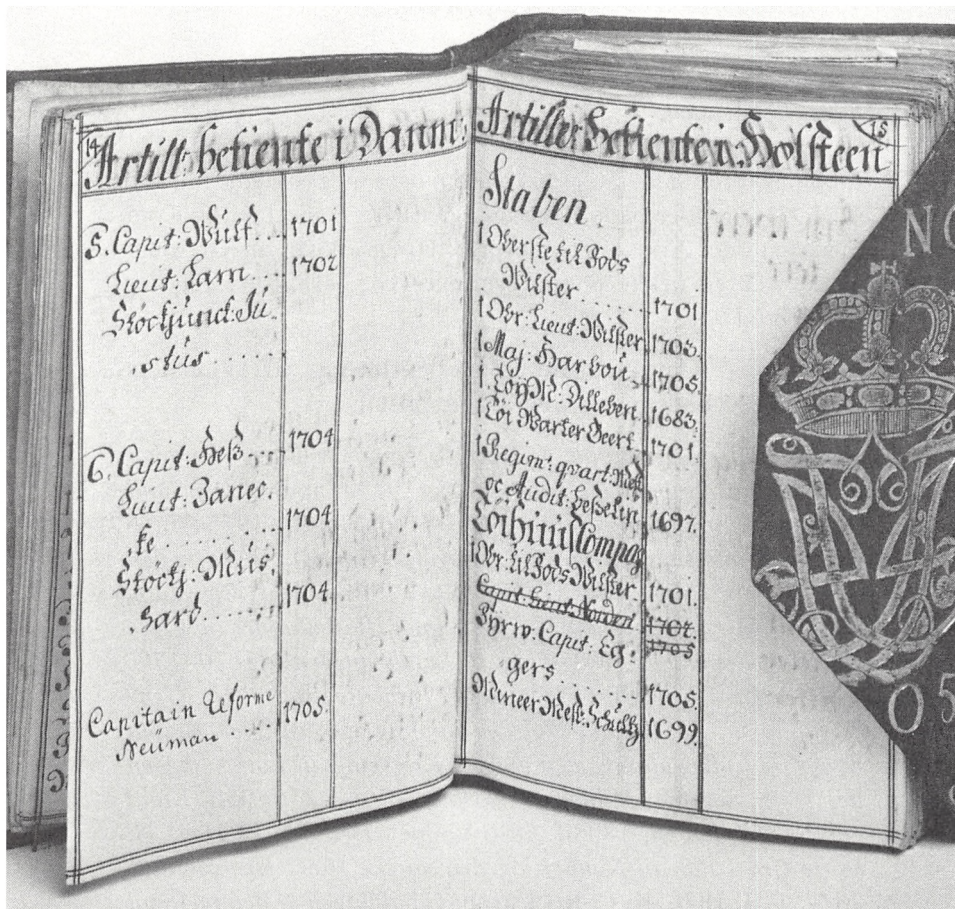 14
Artill: betiente i Danm:
5. Capit: Wulf... 1701
Lieut: Larn.... 1702
Støckjunck: Ju
stus......
6. Capit: Heß... 1704
Luut: Banec.
ke......... 1704
Støckj: Mus.
hard...... 1704
Capitain Reforme
Neuman.... 1705.
15
Artiller: betiente i Holsteen
Staben.
1 Oberste til Fods
Wilster...... 1701
1 Obr: Lieut: Wilster 1703.
1 Maj: Harbou. 1705.
1. Töy M: Dilleben. 1683.
1 Töi Warter Geert. 1701.
1 Regim: qvart: Mest
oc Audit: Heßelin 1697.
Töihuus Compag
1 Obr: til Fods Wilster. 1701.
Capit: Lieut: Norden 1702.
1705
Fyrw: Capit: Eg:
gers....... 1705.
Mineer Mest: Schultz 1699.
NO
05